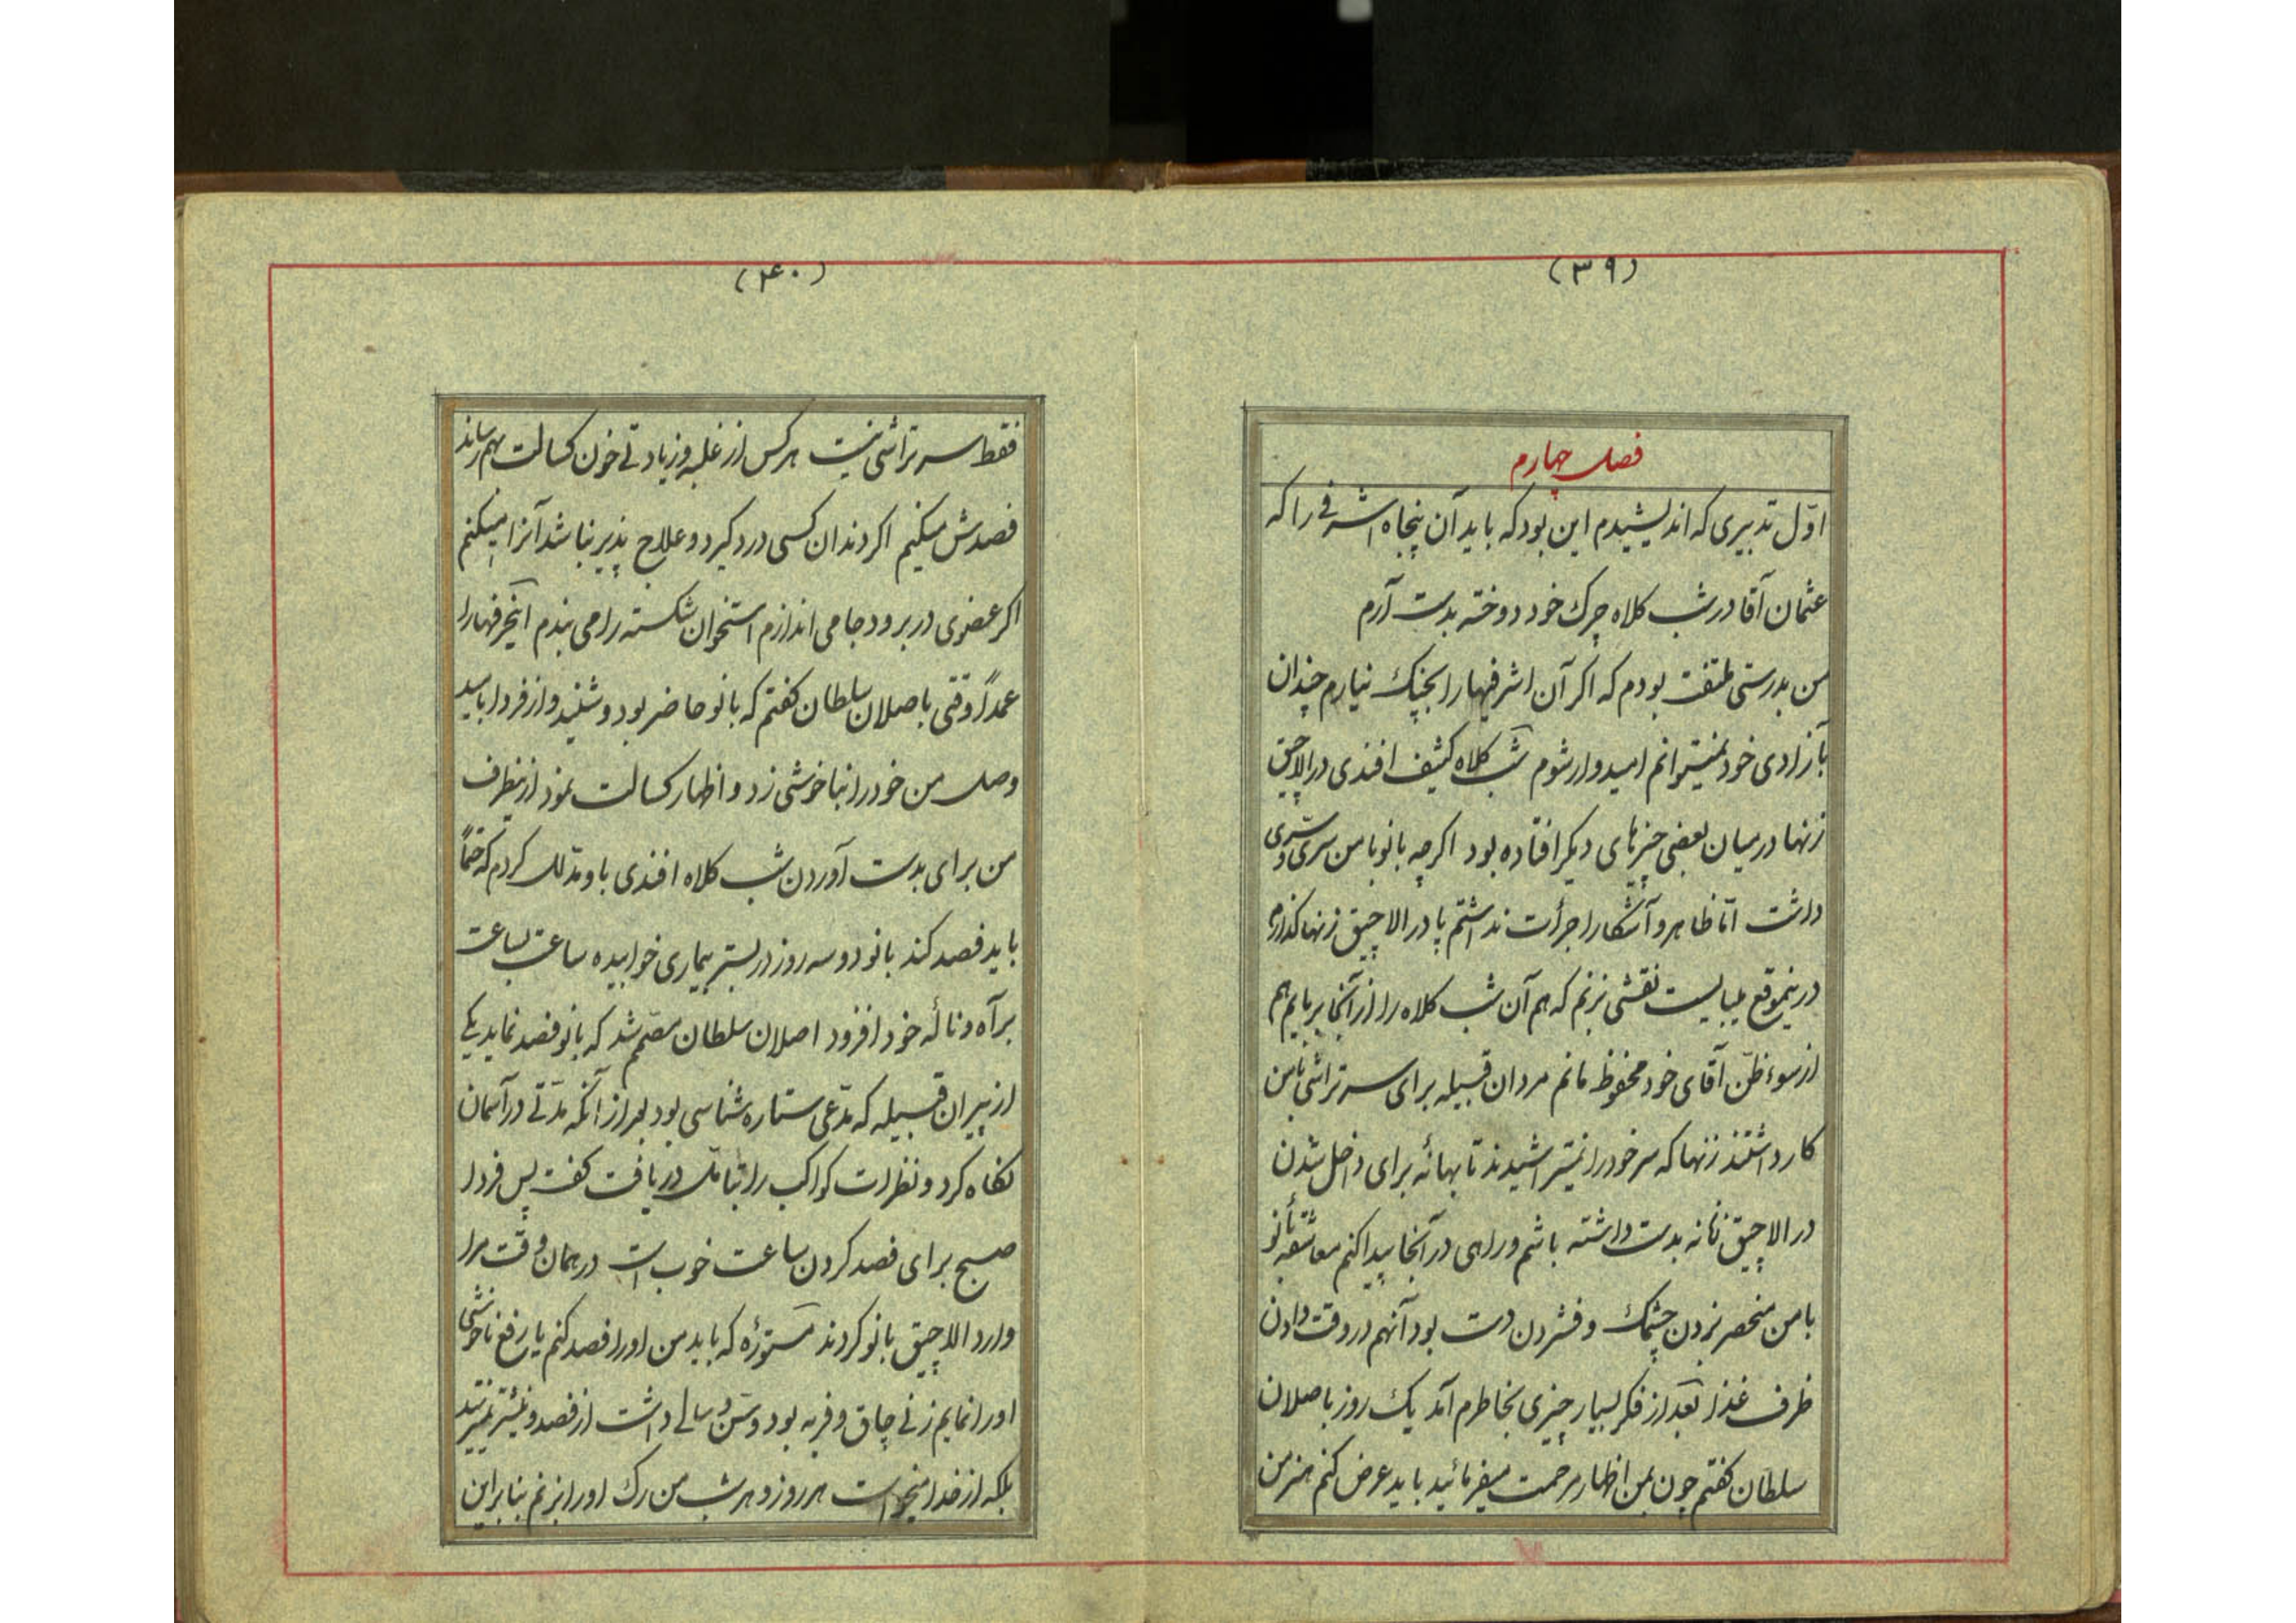 (۳۹)
فصل چهارم
اوّل تدبیری که اندیشیدم این بود که باید آن پنجاه اشرفی را که
عثمان آقا در شب کلاه چرک خود دوخته بدست آرم
من بدرستی ملتفت بودم که اکر آن اشرفیها را بچنک نیارم چندان
بآزادی خود نمیتوانم امیدوار شوم شب کلاه کثیف افندی در الاچیق
زنها در میان بعضی چیزهای دیکر افتاده بود اکرچه بانو با من سری و سری
داشت امّا ظاهر و آشکارا جرأت نداشتم پا در الاچیق زنها کذارم
درینموقع میبایست نقشی بزنم که هم آن شب کلاه را از آنجا بربایم هم
از سوء ظنّ آقای خود محفوظ مانم مردان قبیله برای سر تراشی بامن
کار داشتند زنها که سر خود را نمیتراشیدند تا بهانه برای داخل شدن
در الاچیق زنانه بدست داشته باشم و راهی در آنجا پیدا کنم معاشقه بانو
با من منحصر بزدن چشمک و فشردن دست بود آنهم در وقت دادن
ظرف غذا بعد از فکر بسیار چیزی بخاطرم آمد یک روز باصلان
سلطان کفتم چون بمن اظهار مرحمت میفرمائید باید عرض کنم هنر من
(۴۰)
فقط سر تراشی نیست هر کس از غلبه و زیادتی خون کسالت بهم رساند
فصدش میکنم اکر دندان کسی درد کیرد و علاج پذیر نباشد آنرا میکنم
اکر عضوی در برود جا می اندازم استخوان شکسته را می بندم این حرفها را
عمداً وقتی باصلان سلطان کفتم که بانو حاضر بود و شنید و از فردا بامید
وصل من خود را بناخوشی زد و اظهار کسالت نمود ازینطرف
من برای بدست آوردن شب کلاه افندی باو مدلل کردم که حتماً
باید فصد کند بانو دو سه روز در بستر بیماری خوابیده ساعت بساعت
بر آه و ناله خود افزود اصلان سلطان مصمم شد که بانو فصد نماید یکی
از پیران قبیله که مدّعی ستاره شناسی بود بعد از آنکه مدّتی در آسمان
نکاه کرد و نظرات کواکب را بتامل دریافت کفت پس فردا
صبح برای فصد کردن ساعت خوب است در همان وقت مرا
وارد الاچیق بانو کردند مستوره که باید من او را فصد کنم یا رفع ناخوشی
او را نمایم زنی چاق و فربه بود و سن و سالی داشت از فصد و نیشتر نمیترسید
بلکه از خدا میخواست هر روز و هر شب من رک او را بزنم بنابراین